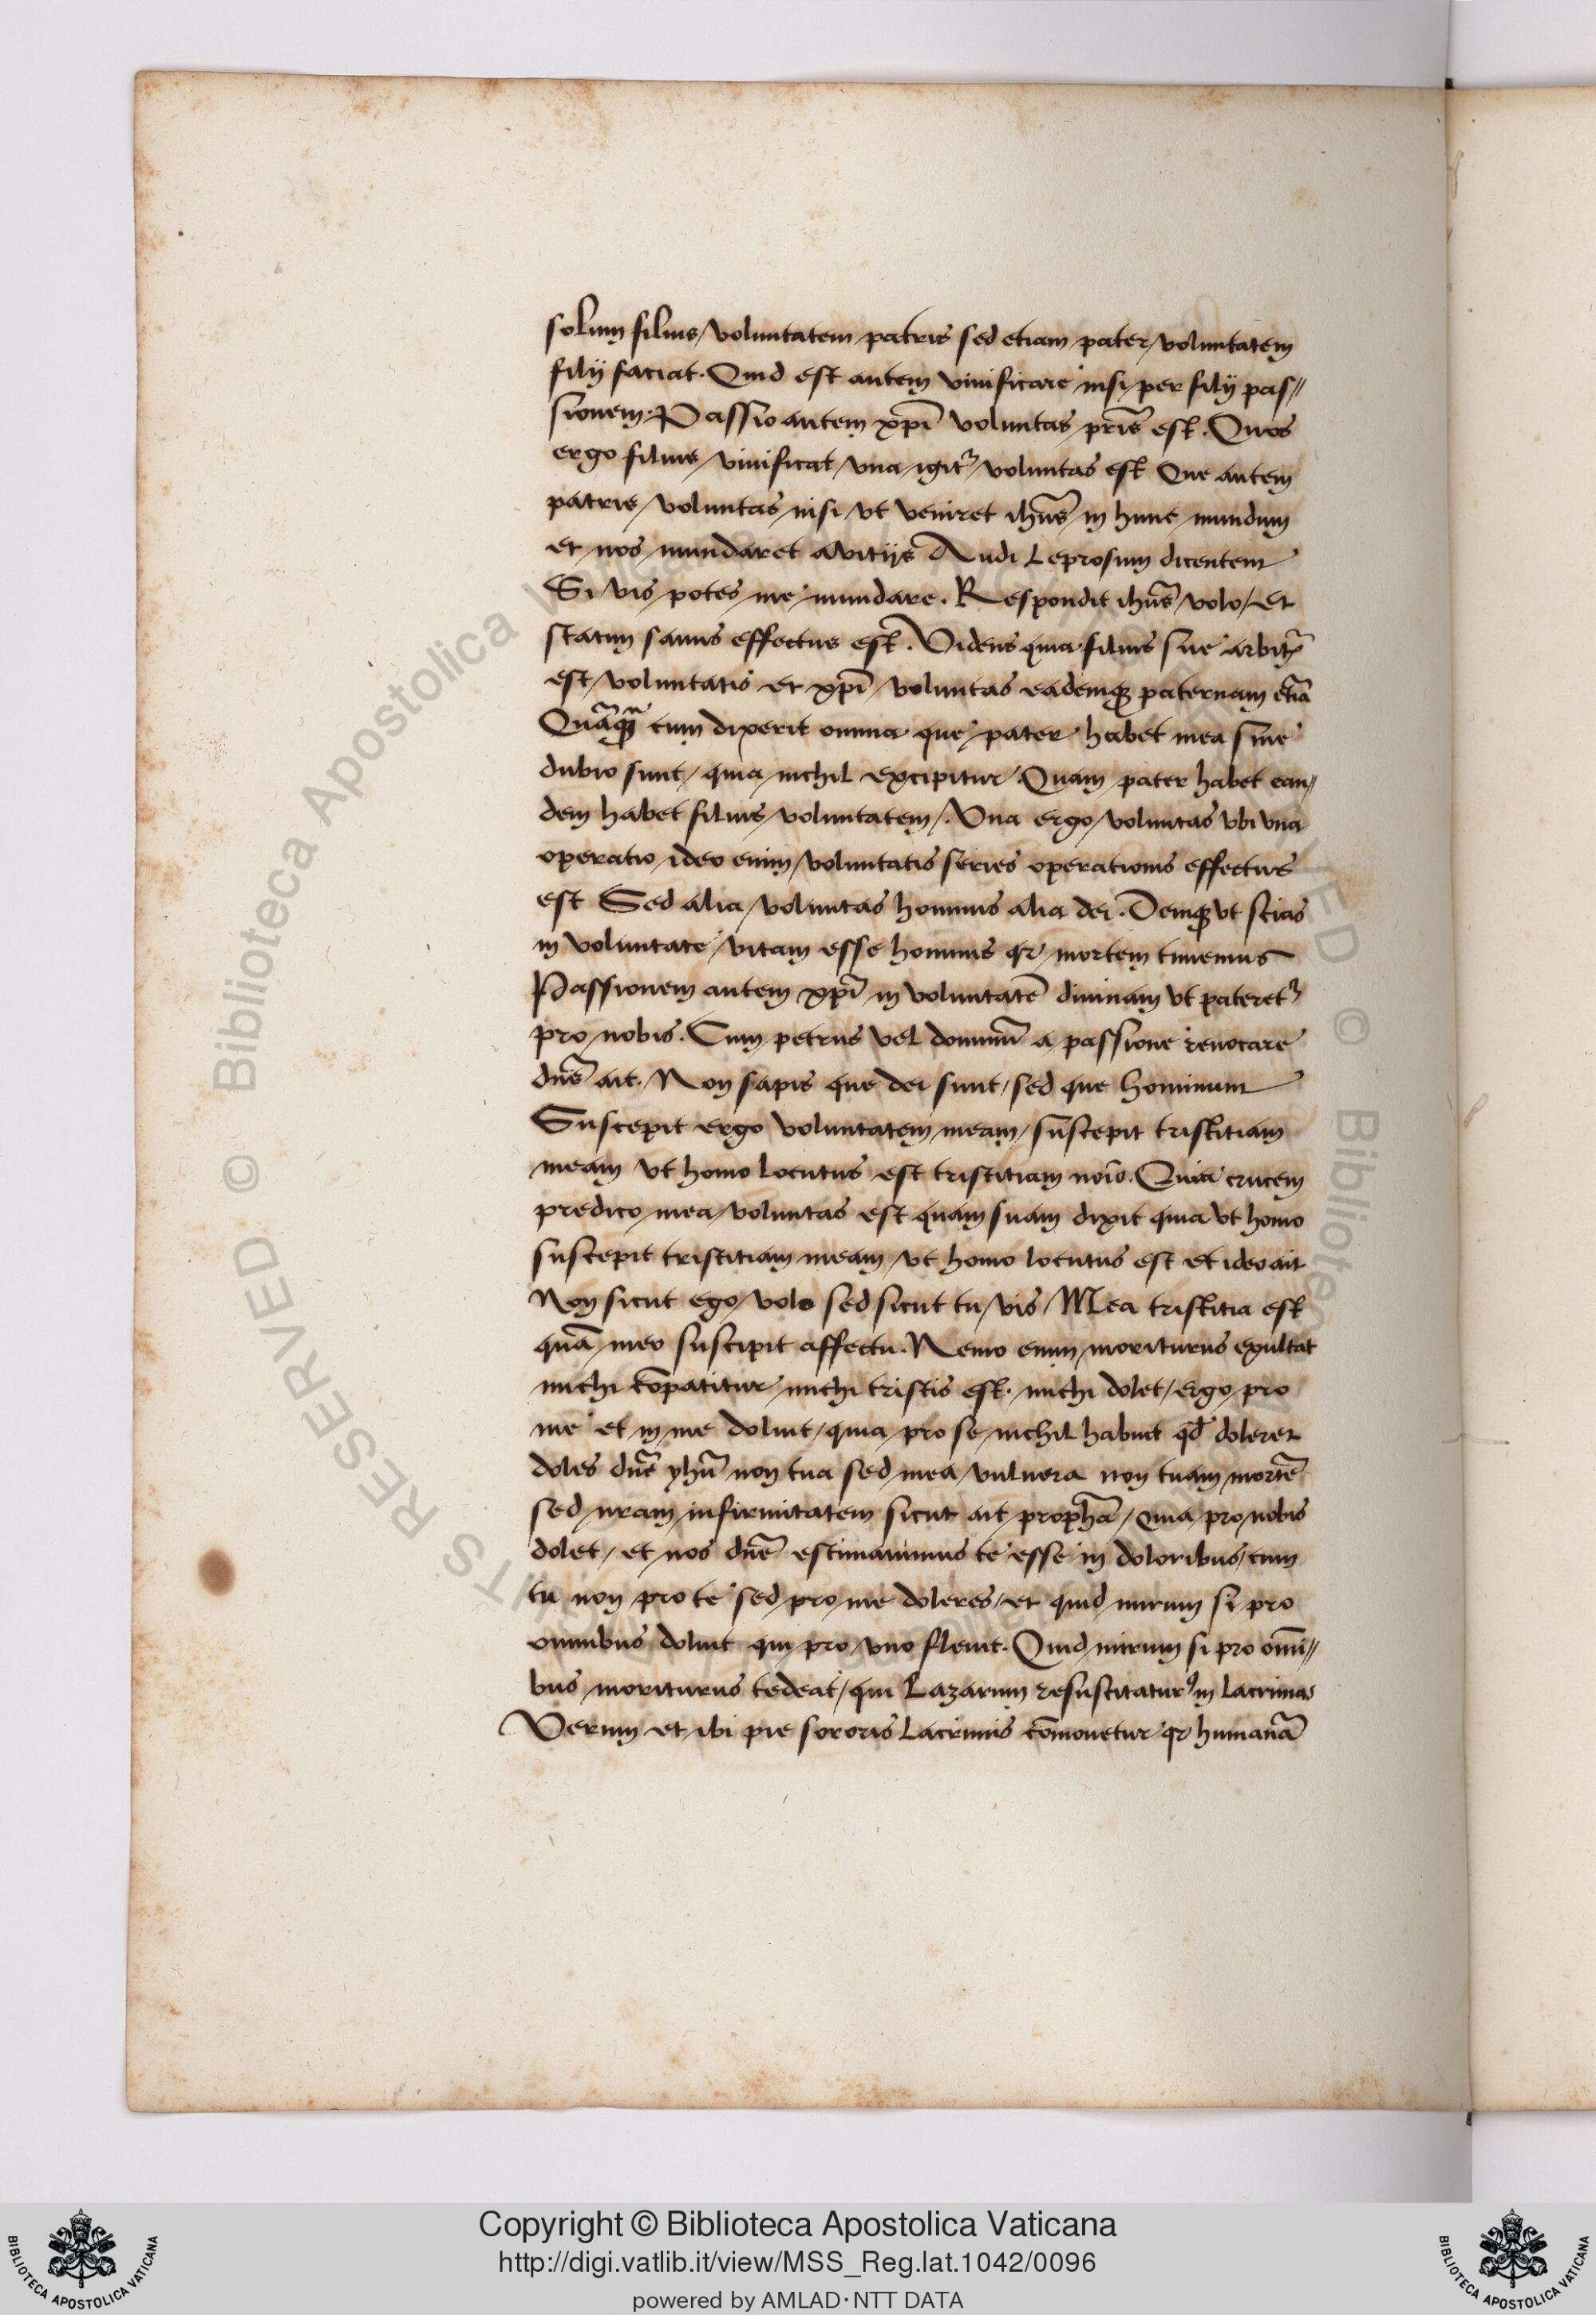 solum filius voluntatem patris sed etiam pater voluntatem
filij faciat. Quid est autem viuificare nisi per filij pas//
sionem. Passio autem xpī voluntas pr̄is est. Quos
ergo filius viuificat vna igit᷑ voluntas est Que autem
patris voluntas nisi vt veniret ihūs in hunc mundum
et nos mundaret a vitijs Audi Leprosum dicentem
Si vis potes me mundare. Respondit ihūs volo / Et
statim sanus effectus est. Videns quia filius sue arbitr̄
est / voluntatis et xpī voluntas eademqꝫ paternam etiā
Quāqꝫ cum dixerit omnia que pater habet mea sine
dubio sunt / quia nichil excipitur Quam pater habet ean//
dem habet filius voluntatem /. Vna ergo voluntas vbi vna
operatio ideo enim voluntatis series operationis effectus
est Sed alia voluntas hominis alia dei. Deniqꝫ vt scias
in voluntate vitam esse hominis qr mortem timemus
Passionem autem xpī in voluntatē diuinam vt pateret᷑
pro nobis. Cum petrus vel dominū a passione reuocare
dn̄s ait. Non sapis que dei sunt / sed que hominum
Suscepit ergo voluntatem meam / suscepit tristitiam
meam vt homo locutus est tristitiam noīo. Quia crucem
predico mea voluntas est quam suam dixit quia vt homo
suscepit tristitiam meam vt homo locutus est et ideo ait
Non sicut ego volo sed sicut tu vis / Mea tristitia est
quā meo suscipit affectu. Nemo enim moriturus exultat
michi cōpatitur michi tristis est. michi dolet / ergo pro
me et in me doluit / quia pro se nichil habuit qd̄ doleret
doles dn̄e yhū non tua sed mea vulnera non tuam mortē
sed nram infirmitatem sicut ait prophā / quia pro nobis
dolet / et nos dn̄e estimauimus te esse in doloribus / cum
tu non pro te sed pro me doleres / et quid mirum si pro
omnibus doluit qui pro vno fleuit. Quid mirum si pro omī//
bus moriturus tedeat / qui Lazarum resuscitaturꝰ in lacrimas
Verum et ibi pie sororis lacrimis cōmouetur qr humanā
Copyright © Biblioteca Apostolica Vaticana
http://digi.vatlib.it/view/MSS_Reg.lat.1042/0096
powered by AMLAD·NTT DATA
BIBLIOTECA APOSTOLICA VATICANA
BIBLIOTECA APOSTOLICA VATICANA